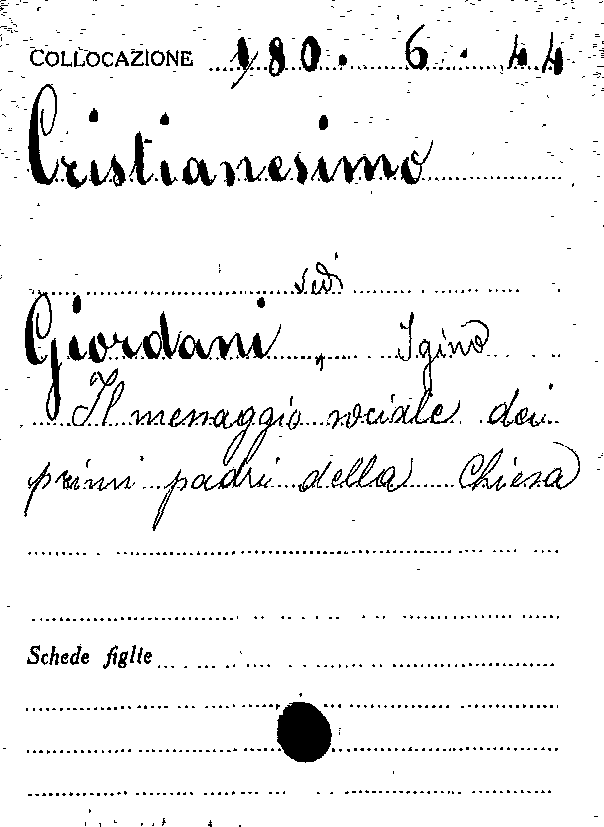 COLLOCAZIONE 180. 6. 44
Cristianesimo
vedi
Giordani, Igino
Il messaggio sociale dei
primi padri della Chiesa
Schede figlie